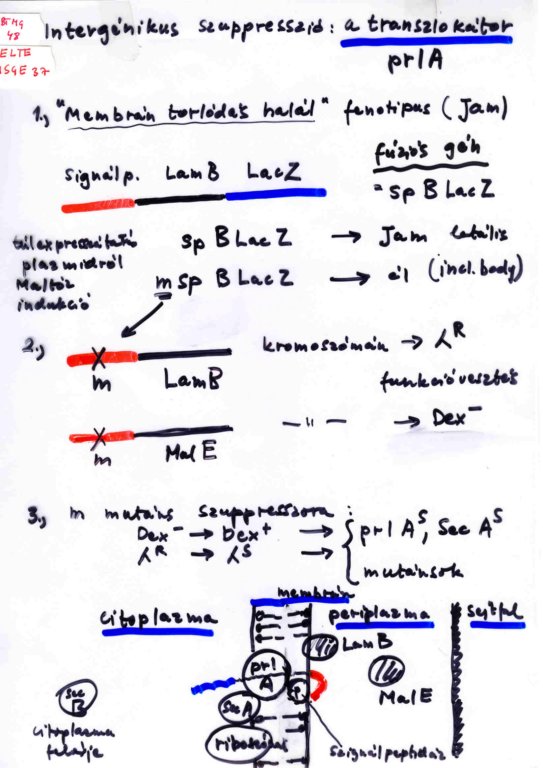 BTMG
48
ELTE
Intergénikus szuppresszió: a transzlokátor
prlA
1., "Membrán torlódás halál" fenotípus (Jam)
fúziós gén
= sp B LacZ
Signálp. LamB LacZ
túlexpresszáltató
plazmidról
Maltóz
indukció
sp B LacZ → Jam letális
m sp B LacZ → él (incl. body)
2.,
m LamB
kromoszómán → λR
funkcióvesztés
m MalE
— " — → Dex-
3., m mutáns szuppresszora:
Dex- → Dex+ → prl AS, Sec AS
λR → λS → mutánsok
membrán
citoplazma periplazma sejtfal
LamB
prl
A
MalE
Sec
B
SecA
citoplazma
riboszóma
szignálpeptidáz